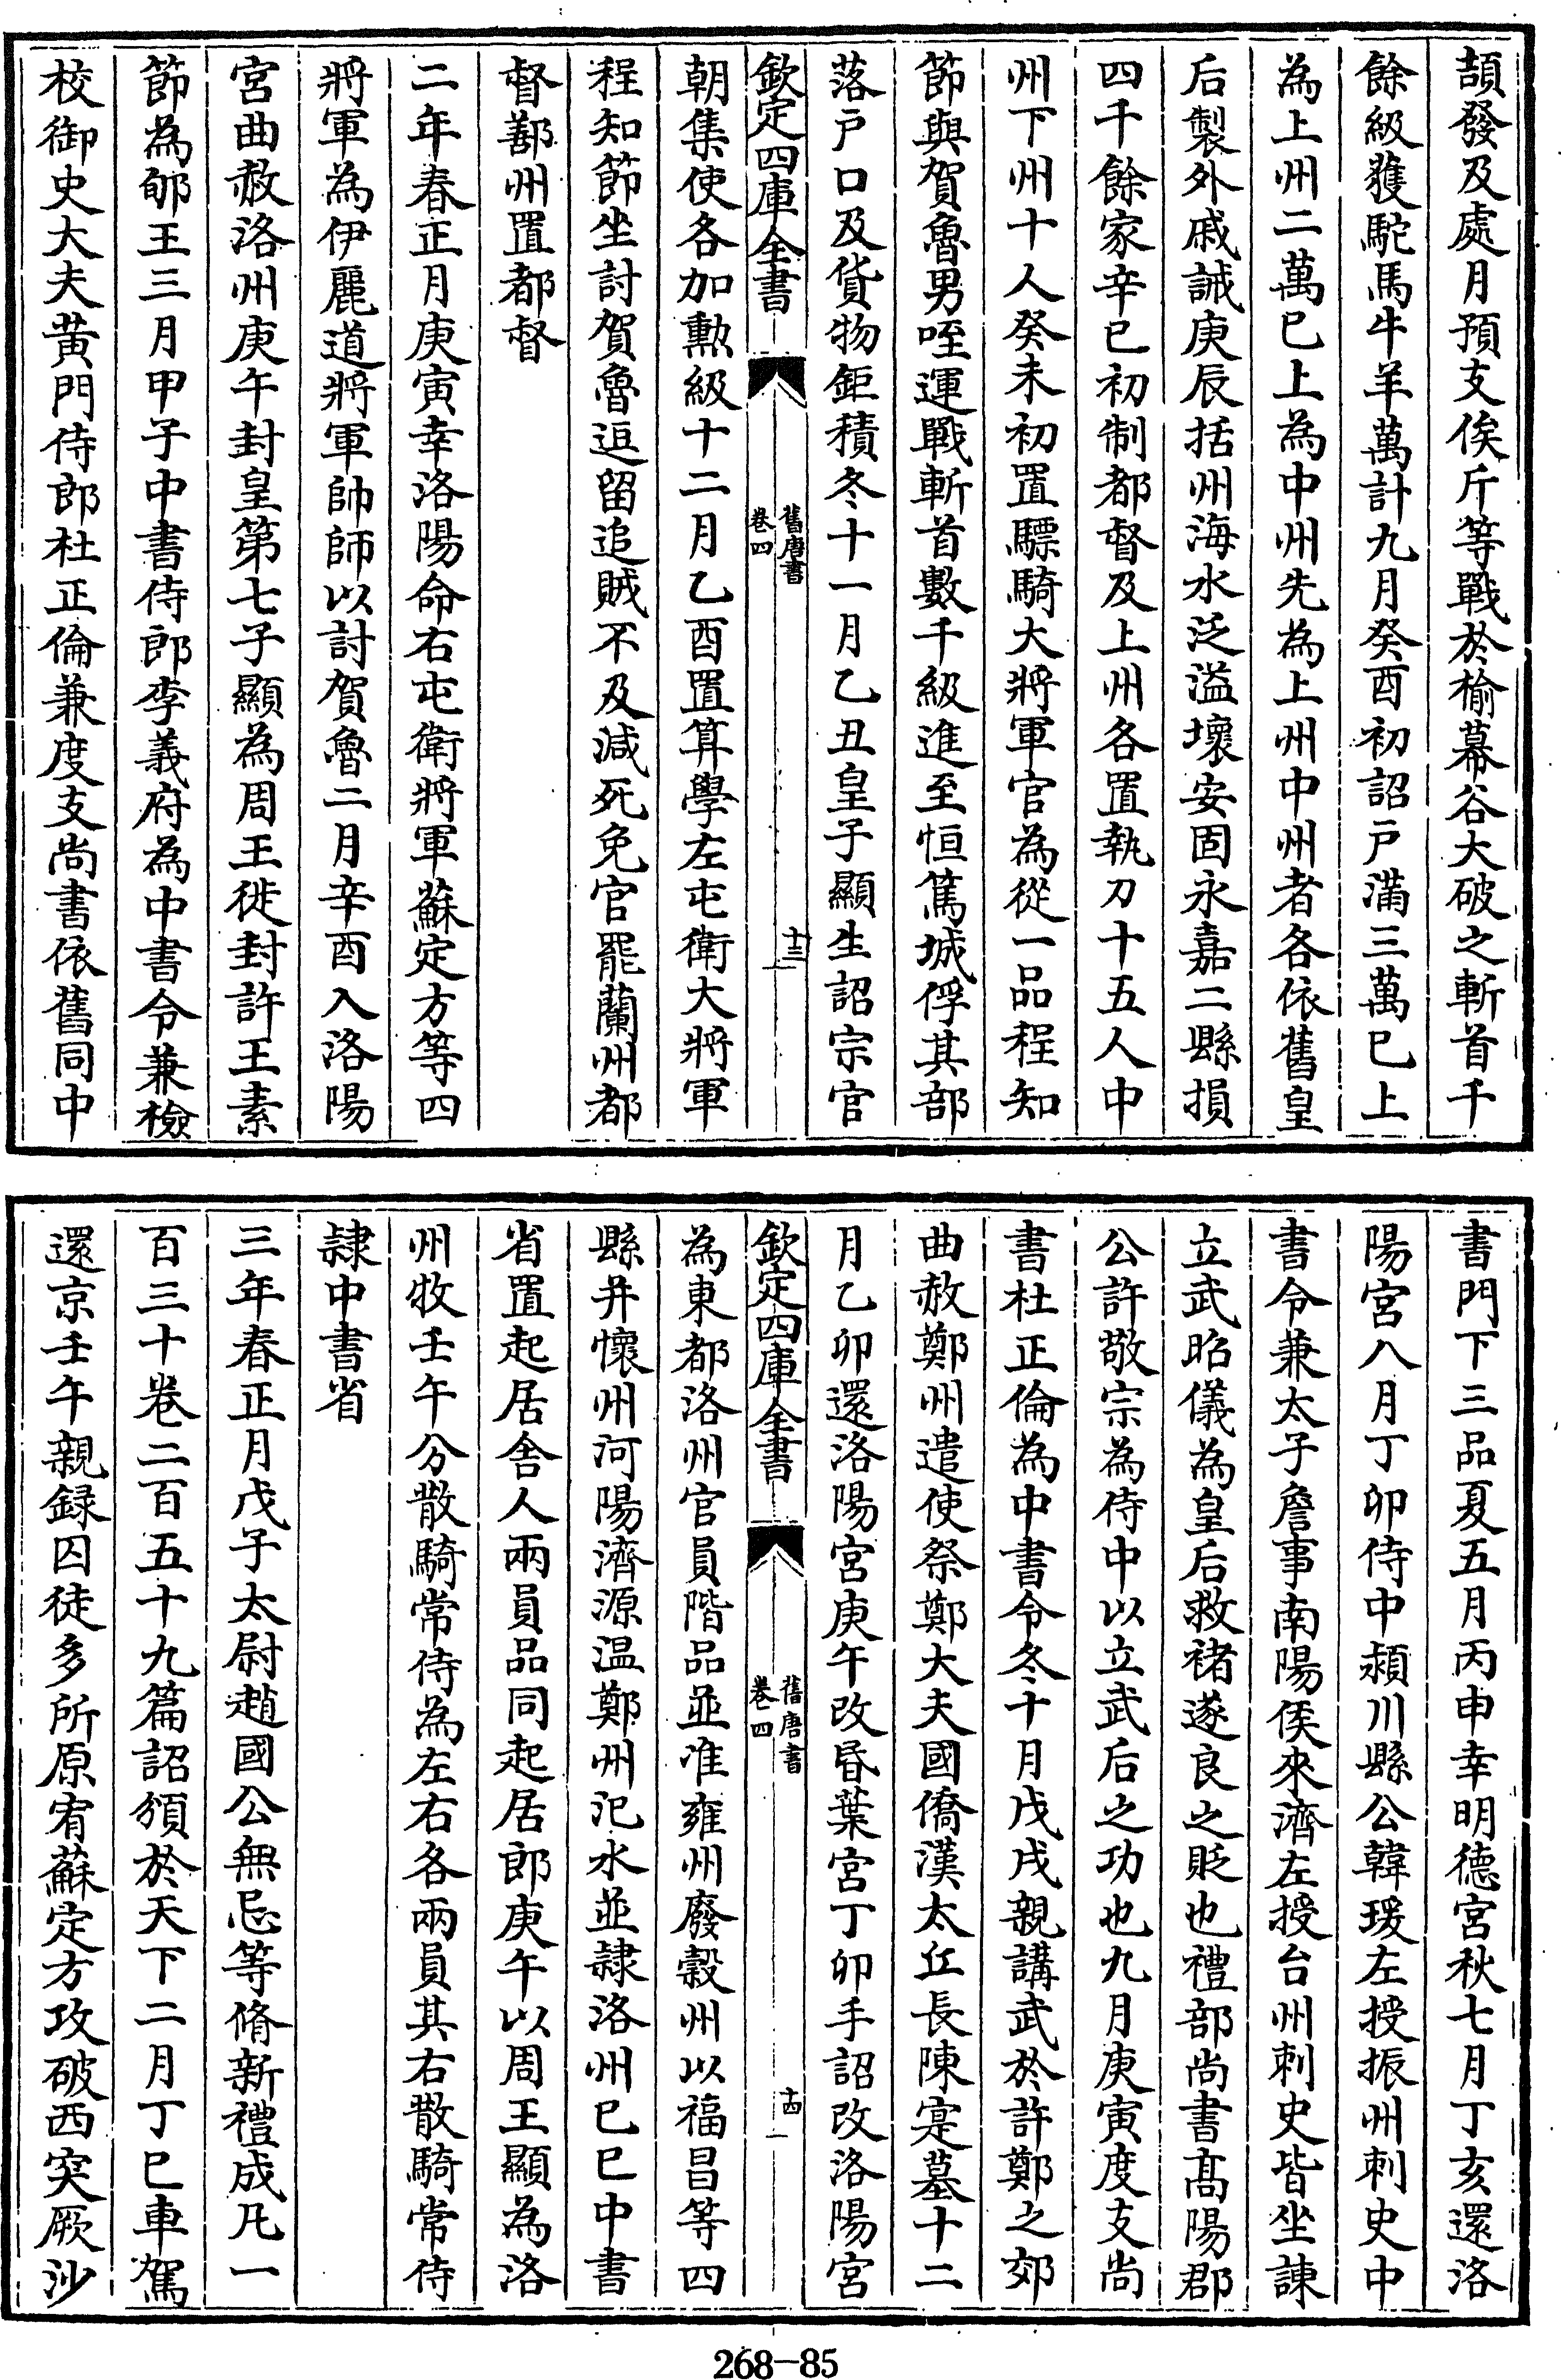 頡發及處月預支俟斤等戰於榆幕谷大破之斬首千
餘級獲駝馬牛羊萬計九月癸酉初詔戶滿三萬已上
為上州二萬已上為中州先為上州中州者各依舊皇
后製外戚誡庚辰括州海水泛溢壞安固永嘉二縣損
四千餘家辛巳初制都督及上州各置執刀十五人中
州下州十人癸未初置驃騎大將軍官為從一品程知
節與賀魯男咥運戰斬首數千級進至恒篤城俘其部
落戶口及貨物鉅積冬十一月乙丑皇子顯生詔宗官
欽定四庫全書
舊唐書
卷四
十三
朝集使各加勲級十二月乙酉置算學左屯衛大將軍
程知節坐討賀魯逗留追賊不及減死免官罷蘭州都
督鄯州置都督
二年春正月庚寅幸洛陽命右屯衛將軍蘇定方等四
將軍為伊麗道將軍帥師以討賀魯二月辛酉入洛陽
宮曲赦洛州庚午封皇第七子顯為周王徙封許王素
節為郇王三月甲子中書侍郎李義府為中書令兼檢
校御史大夫黃門侍郎杜正倫兼度支尚書依舊同中
書門下三品夏五月丙申幸明德宮秋七月丁亥還洛
陽宮八月丁卯侍中潁川縣公韓瑗左授振州刺史中
書令兼太子詹事南陽侯來濟左授台州刺史皆坐諫
立武昭儀為皇后救褚遂良之貶也禮部尚書髙陽郡
公許敬宗為侍中以立武后之功也九月庚寅度支尚
書杜正倫為中書令冬十月戊戌親講武於許鄭之郊
曲赦鄭州遣使祭鄭大夫國僑漢太丘長陳寔墓十二
月乙卯還洛陽宮庚午改昬葉宮丁卯手詔改洛陽宮
欽定四庫全書
舊唐書
卷四
十四
為東都洛州官員階品並准雍州廢縠州以福昌等四
縣并懷州河陽濟源温鄭州汜水並隸洛州已巳中書
省置起居舍人兩員品同起居郎庚午以周王顯為洛
州牧壬午分散騎常侍為左右各兩員其右散騎常侍
隸中書省
三年春正月戊子太尉趙國公無忌等脩新禮成凡一
百三十卷二百五十九篇詔頒於天下二月丁巳車駕
還京壬午親録囚徒多所原宥蘇定方攻破西突厥沙
268-85